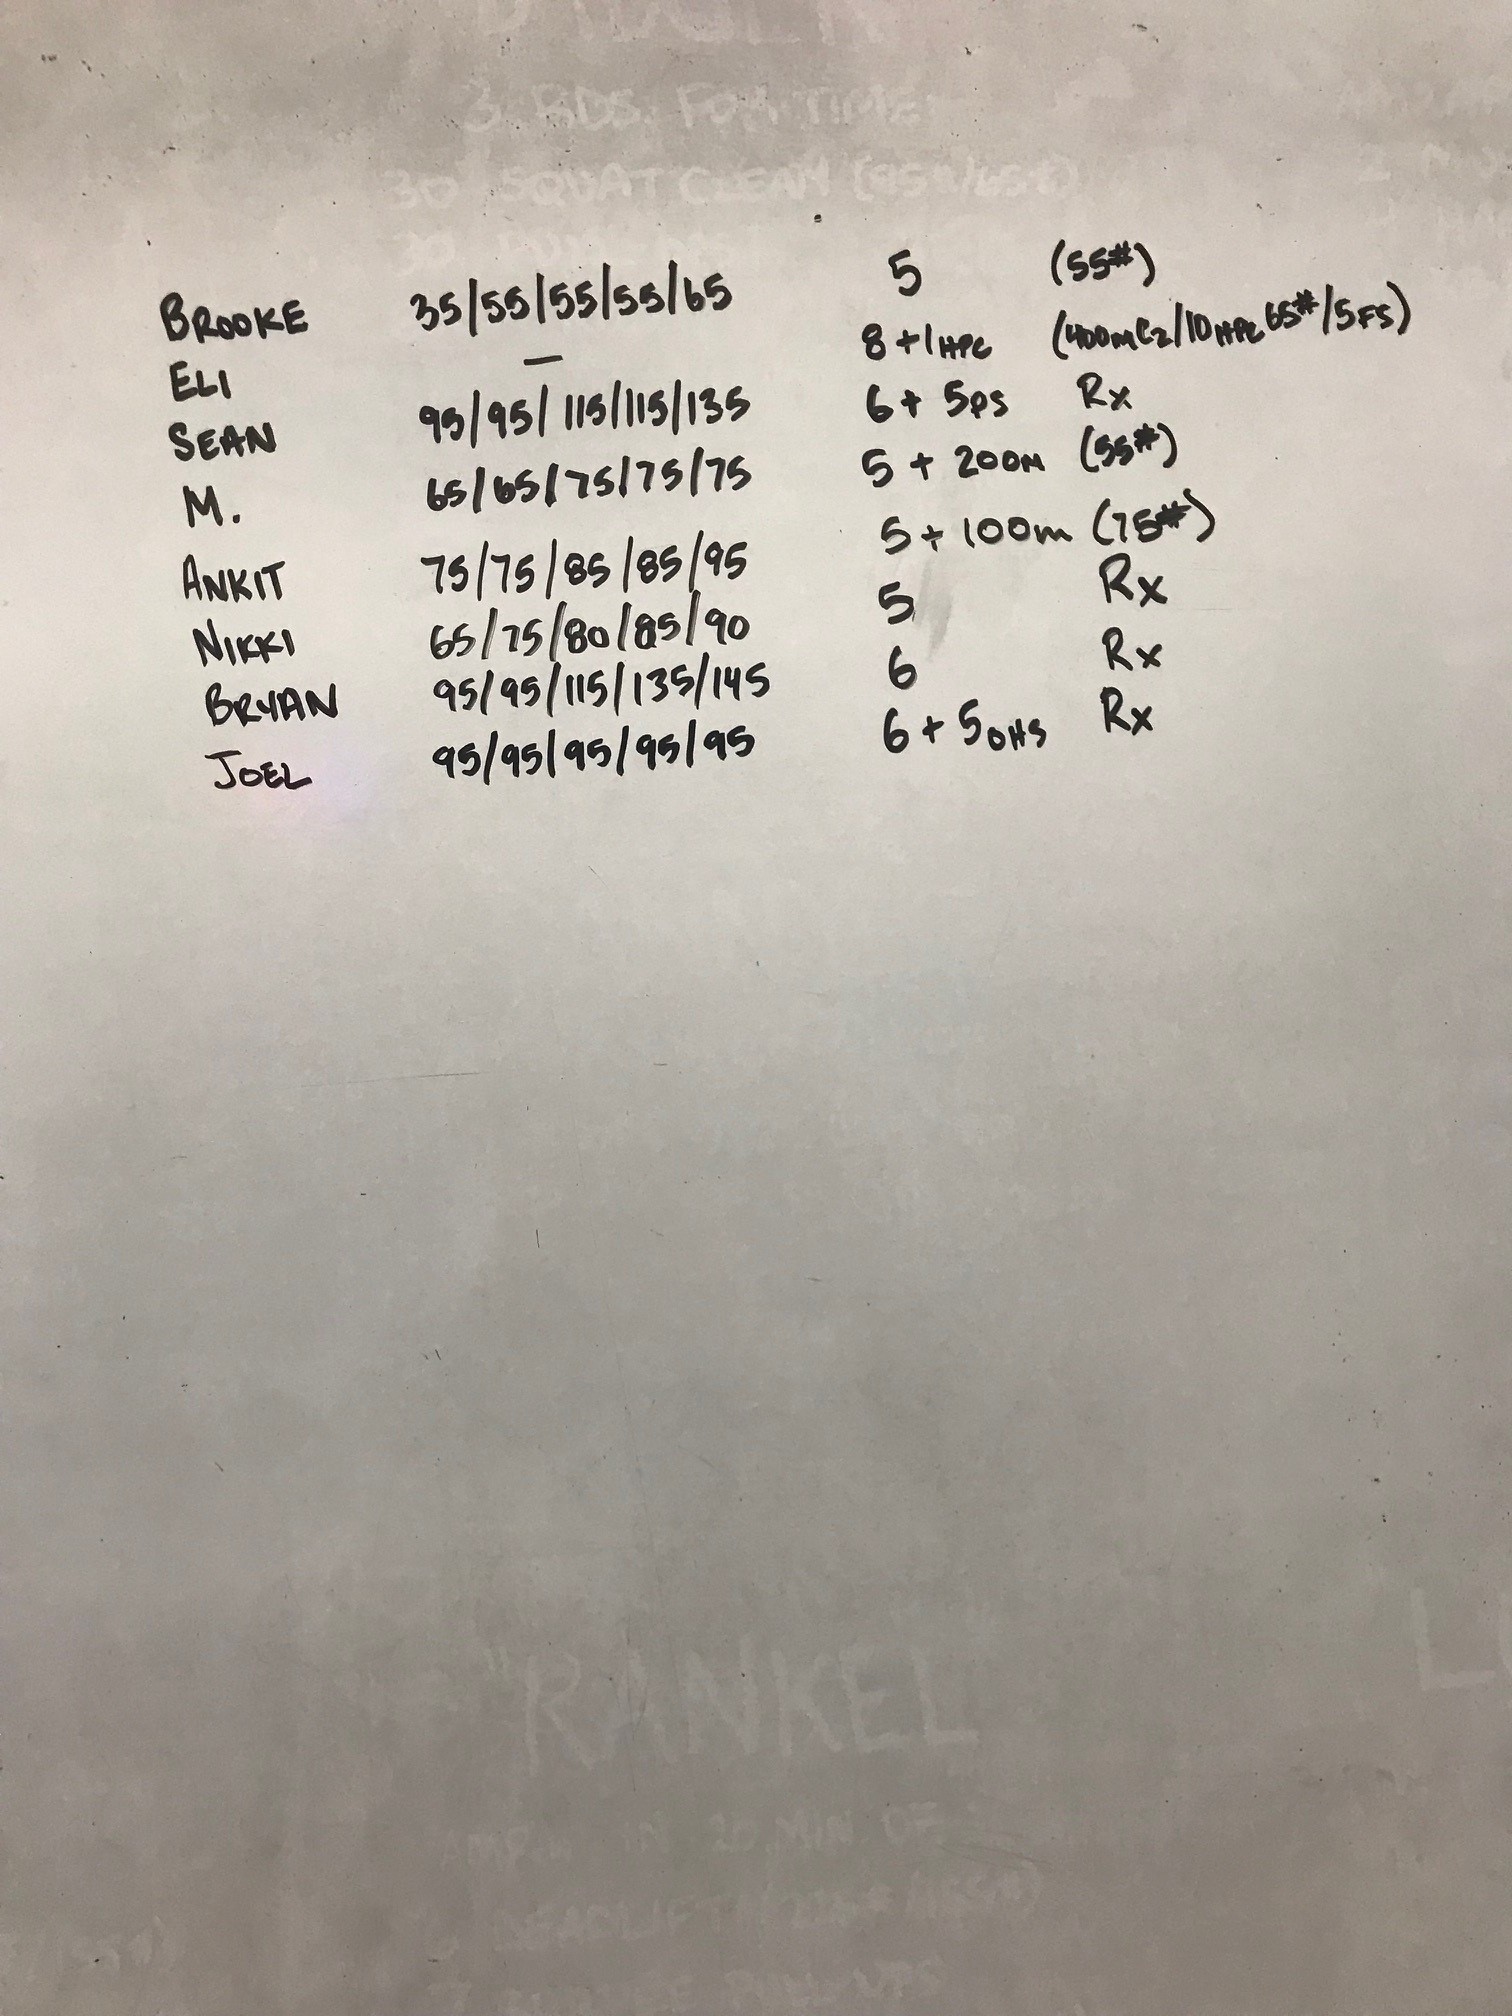 3 RDS FOR TIME
30 SQUAT CLEAN
BROOKE 35/55/55/55/65 5 (55#)
ELI — 8 + 1 HPC (400m C2/10 HPC 65#/5 FS)
SEAN 95/95/115/115/135 6 + 5 PS Rx
M. 65/65/75/75/75 5 + 200m (55#)
ANKIT 75/75/85/85/95 5 + 100m (75#)
NIKKI 65/75/80/85/90 5 Rx
BRYAN 95/95/115/135/145 6 Rx
JOEL 95/95/95/95/95 6 + 5 OHS Rx
"RANKEL
AMRAP IN 20 MIN OF
DEADLIFT